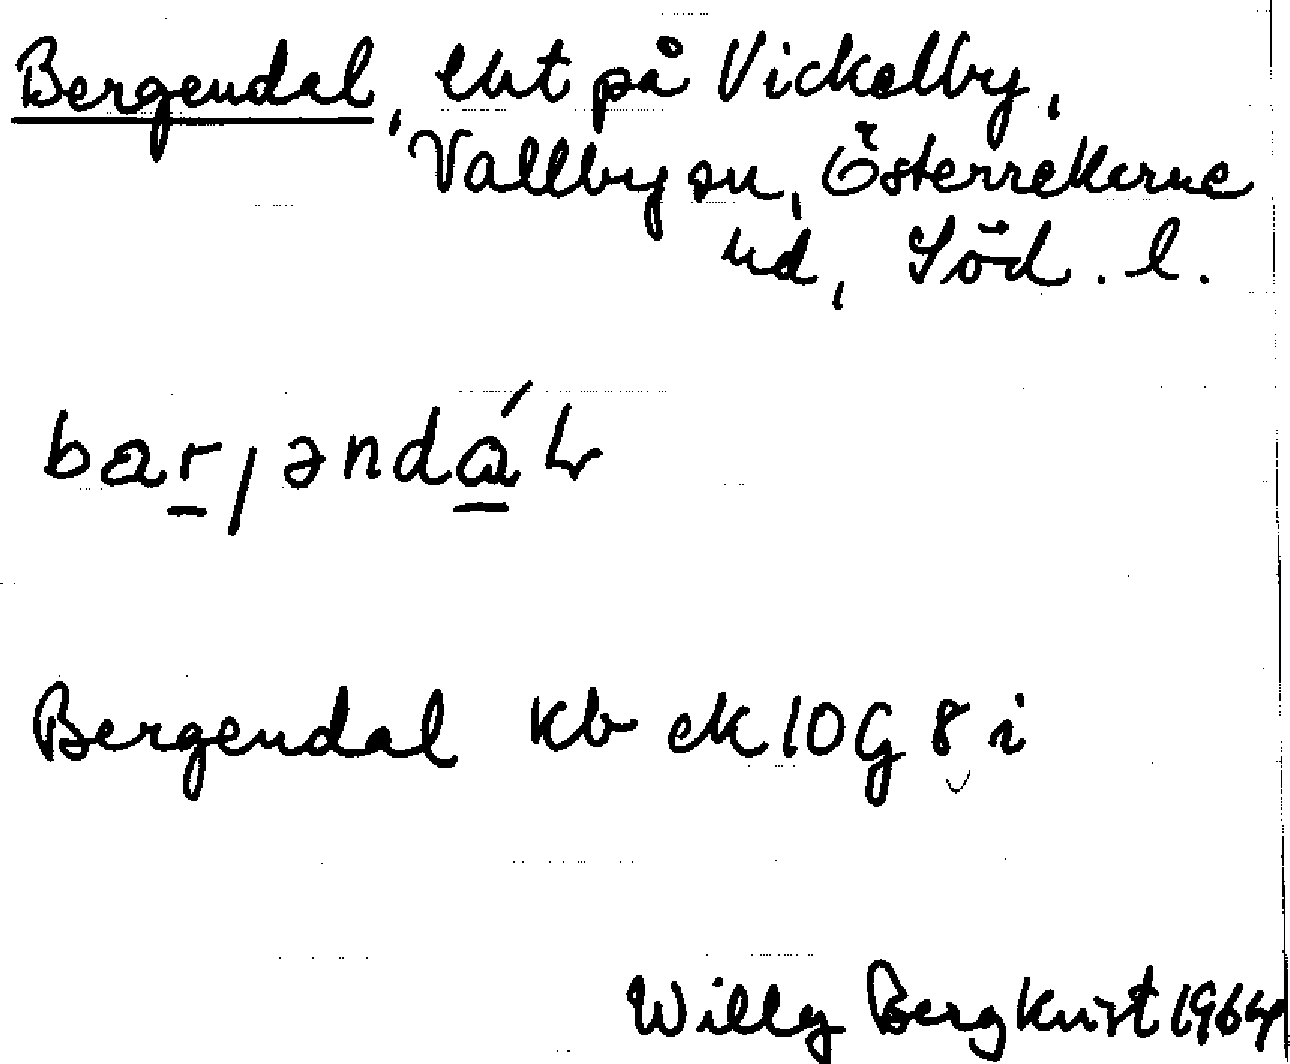 Bergendal, lht på Vickelby,
Vallby sn, Österrekarne
hd, Söd. l.
bar/əndáḷ
Bergendal kb ek 10G 8 i
Willy Bergkvist 1964